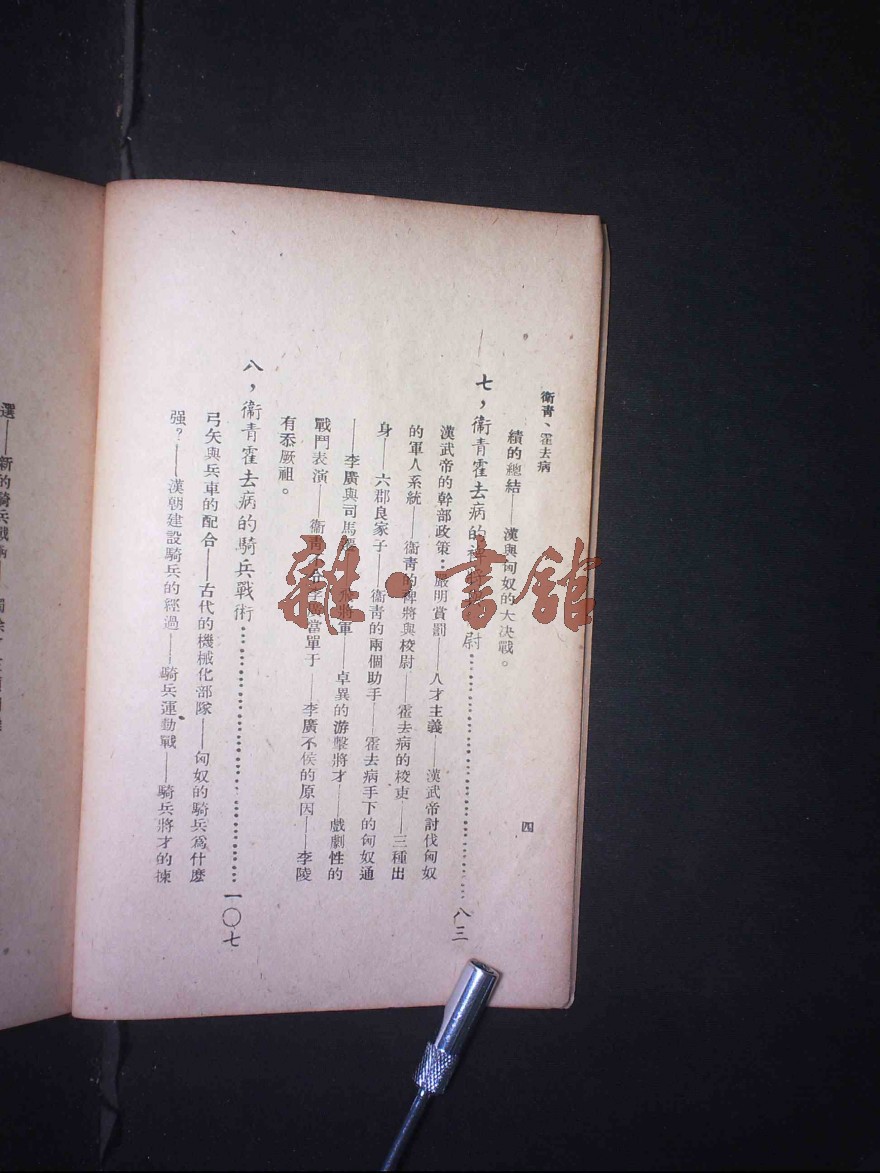 衞青、霍去病
四
績的總結——漢與匈奴的大決戰。
七，衞青霍去病的裨將與校尉……八三
漢武帝的幹部政策：嚴明賞罰——人才主義——漢武帝討伐匈奴
的軍人系統——衞青的裨將與校尉——霍去病的校吏——三種出
身——六郡良家子——衞青的兩個助手——霍去病手下的匈奴通
——李廣與司馬遷——飛將軍——卓異的游擊將才——戲劇性的
戰鬥表演——衞青不令李廣當單于——李廣不侯的原因——李陵
有忝厥祖。
八，衞青霍去病的騎兵戰術……一〇七
弓矢與兵車的配合——古代的機械化部隊——匈奴的騎兵爲什麽
强？——漢朝建設騎兵的經過——騎兵運動戰——騎兵將才的揀
選——新的騎兵戰
雜·書館